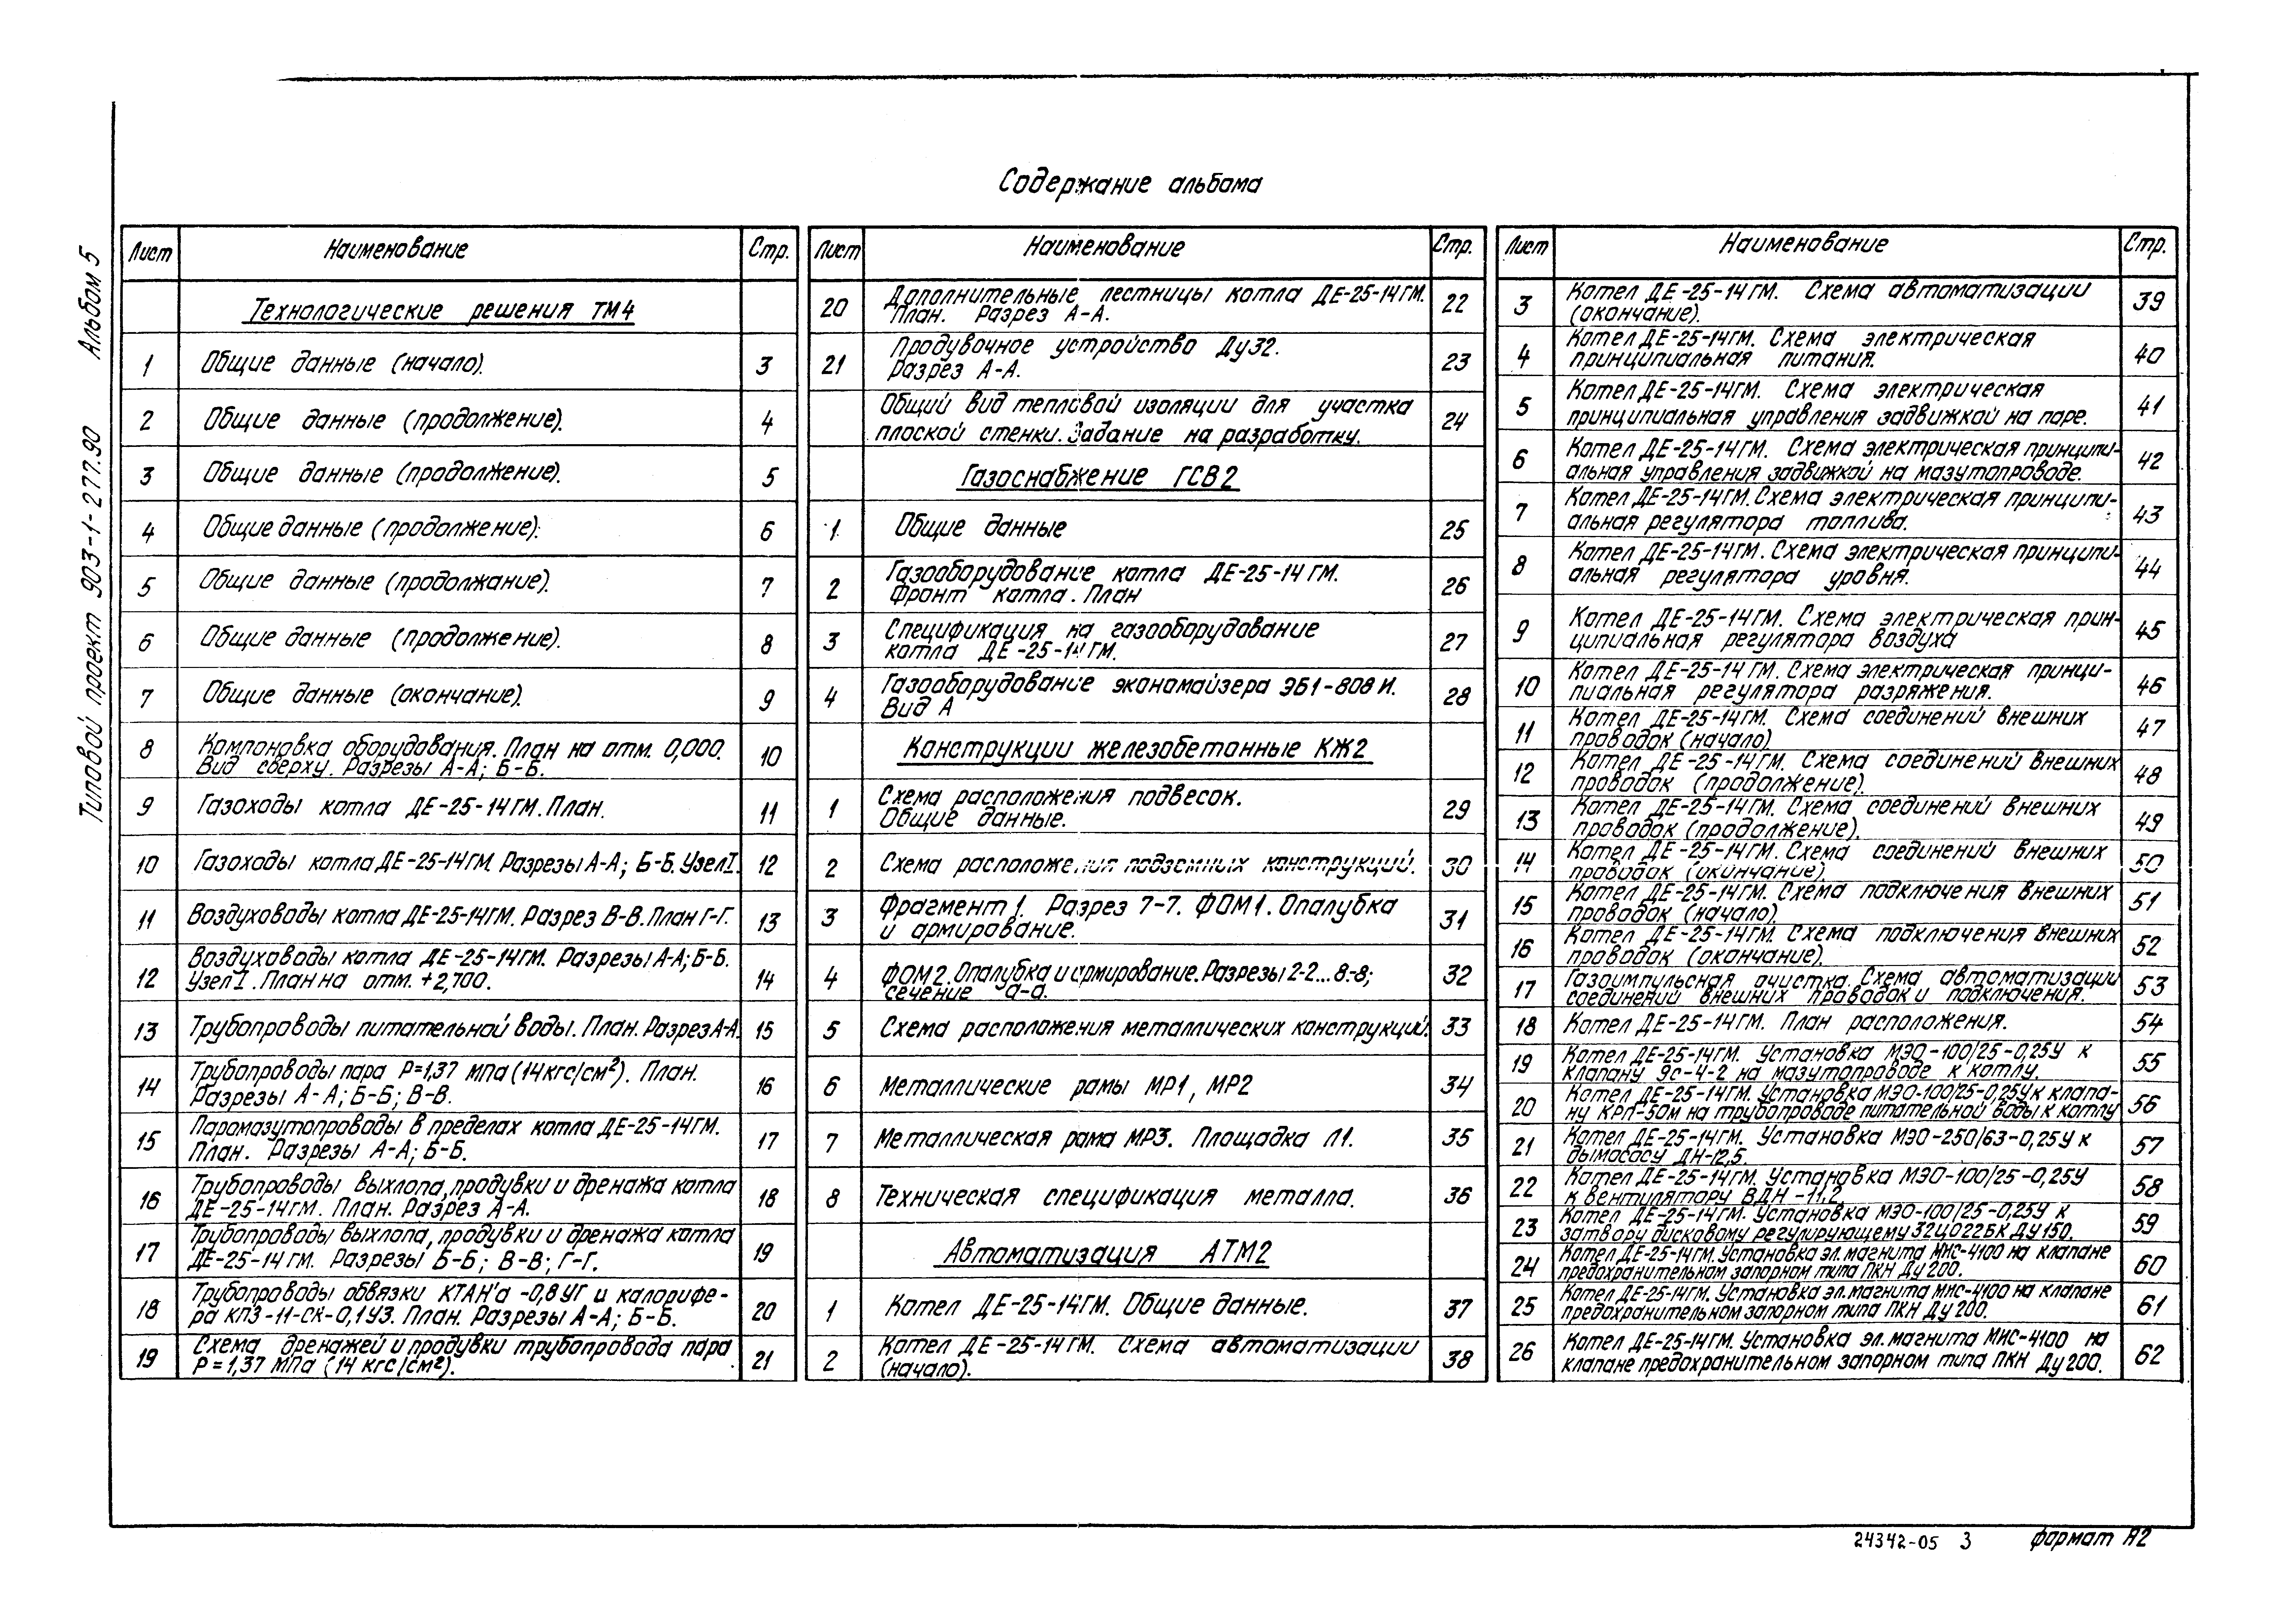 Типовой проект 903-1-277.90 Альбом 5
Содержание альбома
Лист Наименование Стр.
Технологические решения ТМ4
1 Общие данные (начало). 3
2 Общие данные (продолжение). 4
3 Общие данные (продолжение). 5
4 Общие данные (продолжение). 6
5 Общие данные (продолжание). 7
6 Общие данные (продолжение). 8
7 Общие данные (окончание). 9
8 Компоновка оборудования. План на отм. 0,000.
Вид сверху. Разрезы А-А; Б-Б. 10
9 Газоходы котла ДЕ-25-14ГМ. План. 11
10 Газоходы котла ДЕ-25-14ГМ. Разрезы А-А; Б-Б. Узел I. 12
11 Воздуховоды котла ДЕ-25-14ГМ. Разрез В-В. План Г-Г. 13
12 Воздуховоды котла ДЕ-25-14ГМ. Разрезы А-А; Б-Б.
Узел I. План на отм. +2,700. 14
13 Трубопроводы питательной воды. План. Разрез А-А. 15
14 Трубопроводы пара Р=1,37 МПа (14кгс/см²). План.
Разрезы А-А; Б-Б; В-В. 16
15 Паромазутопроводы в пределах котла ДЕ-25-14ГМ.
План. Разрезы А-А; Б-Б. 17
16 Трубопроводы выхлопа, продувки и дренажа котла
ДЕ-25-14ГМ. План. Разрез А-А. 18
17 Трубопроводы выхлопа, продувки и дренажа котла
ДЕ-25-14ГМ. Разрезы Б-Б; В-В; Г-Г. 19
18 Трубопроводы обвязки КТАН'а -0,8УГ и калорифе-
ра КПЗ-11-СК-0,1УЗ. План. Разрезы А-А; Б-Б. 20
19 Схема дренажей и продувки трубопровода пара
Р=1,37 МПа (14 кгс/см²). 21
Лист Наименование Стр.
20 Дополнительные лестницы котла ДЕ-25-14ГМ.
План. Разрез А-А. 22
21 Продувочное устройство Ду32.
Разрез А-А. 23
Общий вид тепловой изоляции для участка
плоской стенки. Задание на разработку. 24
Газоснабжение ГСВ2
1 Общие данные 25
2 Газооборудование котла ДЕ-25-14ГМ.
Фронт котла. План 26
3 Спецификация на газооборудование
котла ДЕ-25-14ГМ. 27
4 Газооборудование экономайзера ЭБ1-808И.
Вид А 28
Конструкции железобетонные КЖ2
1 Схема расположения подвесок.
Общие данные. 29
2 Схема расположения подземных конструкций. 30
3 Фрагмент 1. Разрез 7-7. ФОМ1. Опалубка
и армирование. 31
4 ФОМ2. Опалубка и армирование. Разрезы 2-2...8-8;
сечение а-а. 32
5 Схема расположения металлических конструкций. 33
6 Металлические рамы МР1, МР2 34
7 Металлическая рама МР3. Площадка Л1. 35
8 Техническая спецификация металла. 36
Автоматизация АТМ2
1 Котел ДЕ-25-14ГМ. Общие данные. 37
2 Котел ДЕ-25-14ГМ. Схема автоматизации
(начало). 38
Лист Наименование Стр.
3 Котел ДЕ-25-14ГМ. Схема автоматизации
(окончание). 39
4 Котел ДЕ-25-14ГМ. Схема электрическая
принципиальная питания. 40
5 Котел ДЕ-25-14ГМ. Схема электрическая
принципиальная управления задвижкой на паре. 41
6 Котел ДЕ-25-14ГМ. Схема электрическая принципи-
альная управления задвижкой на мазутопроводе. 42
7 Котел ДЕ-25-14ГМ. Схема электрическая принципи-
альная регулятора топлива. 43
8 Котел ДЕ-25-14ГМ. Схема электрическая принципи-
альная регулятора уровня. 44
9 Котел ДЕ-25-14ГМ. Схема электрическая прин-
ципиальная регулятора воздуха 45
10 Котел ДЕ-25-14ГМ. Схема электрическая принци-
пиальная регулятора разряжения. 46
11 Котел ДЕ-25-14ГМ. Схема соединений внешних
проводок (начало). 47
12 Котел ДЕ-25-14ГМ. Схема соединений внешних
проводок (продолжение). 48
13 Котел ДЕ-25-14ГМ. Схема соединений внешних
проводок (продолжение). 49
14 Котел ДЕ-25-14ГМ. Схема соединений внешних
проводок (окончание). 50
15 Котел ДЕ-25-14ГМ. Схема подключения внешних
проводок (начало). 51
16 Котел ДЕ-25-14ГМ. Схема подключения внешних
проводок (окончание). 52
17 Газоимпульсная очистка. Схема автоматизации
соединений внешних проводок и подключения. 53
18 Котел ДЕ-25-14ГМ. План расположения. 54
19 Котел ДЕ-25-14ГМ. Установка МЭО-100/25-0,25У к
клапану 9с-4-2 на мазутопроводе к котлу. 55
20 Котел ДЕ-25-14ГМ. Установка МЭО-100/25-0,25У к клапа-
ну КРП-50м на трубопроводе питательной воды к котлу 56
21 Котел ДЕ-25-14ГМ. Установка МЭО-250/63-0,25У к
дымососу ДН-12,5. 57
22 Котел ДЕ-25-14ГМ. Установка МЭО-100/25-0,25У
к вентилятору ВДН-11,2. 58
23 Котел ДЕ-25-14ГМ. Установка МЭО-100/25-0,25У к
затвору дисковому регулирующему 32ц022БК ДУ150. 59
24 Котел ДЕ-25-14ГМ. Установка эл.магнита МИС-4100 на клапане
предохранительном запорном типа ПКН Ду 200. 60
25 Котел ДЕ-25-14ГМ. Установка эл.магнита МИС-4100 на клапане
предохранительном запорном типа ПКН Ду 200. 61
26 Котел ДЕ-25-14ГМ. Установка эл.магнита МИС-4100 на
клапане предохранительном запорном типа ПКН Ду 200. 62
24342-05 3 формат А2